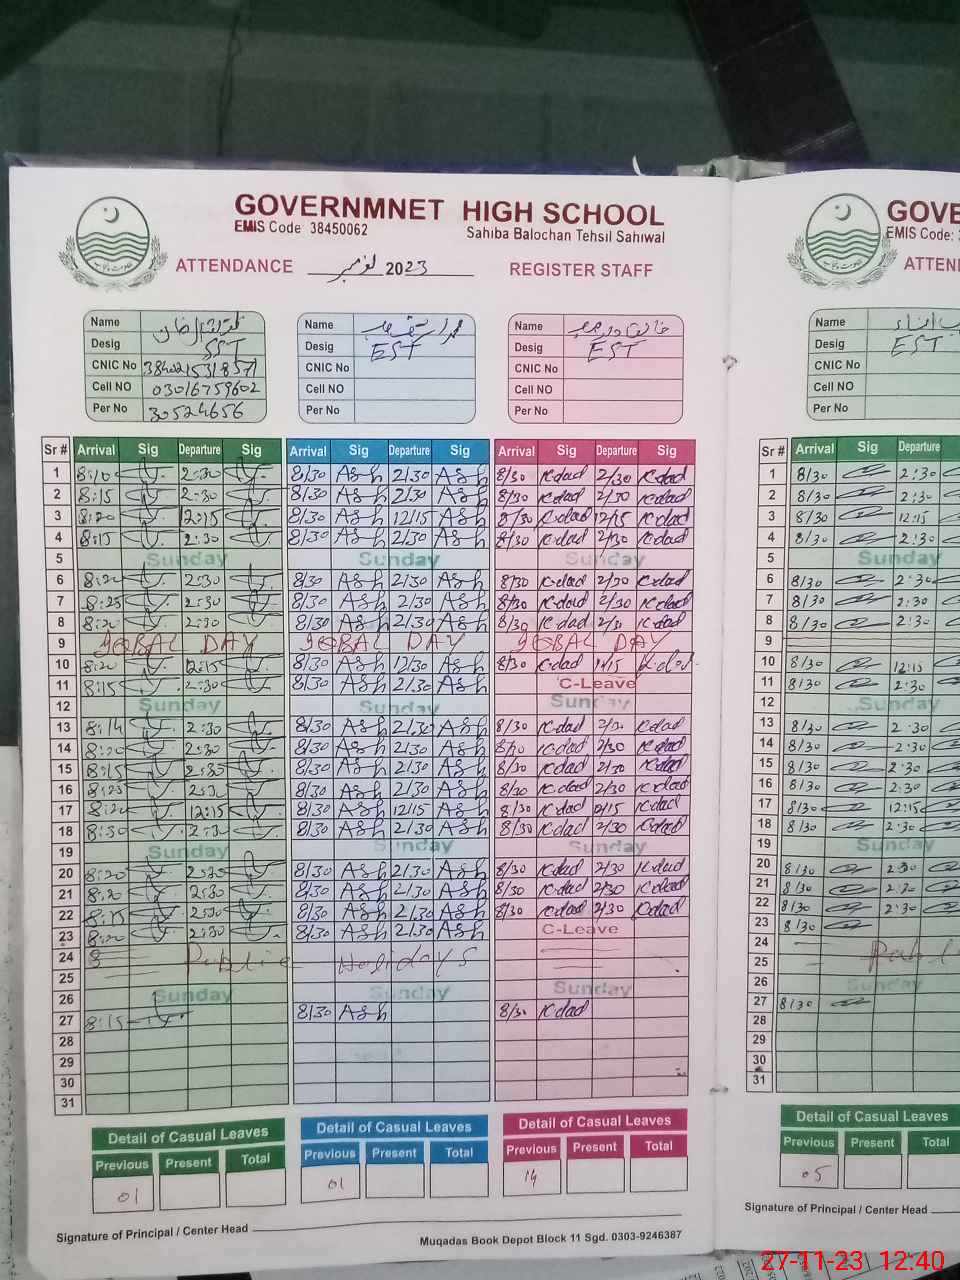 GOVERNMNET HIGH SCHOOL
EMIS Code 38450062
Sahiba Balochan Tehsil Sahiwal
ATTENDANCE نومبر 2023 REGISTER STAFF
Name
Desig SST
CNIC No
Cell NO 03016759602
Per No 30524656
Name
Desig EST
CNIC No
Cell NO
Per No
Name
Desig EST
CNIC No
Cell NO
Per No
Sr # Arrival Sig Departure Sig Arrival Sig Departure Sig Arrival Sig Departure Sig
1 8:10 2:30 8/30 Ash 2/30 Ash 8/30 Kdad 2/30 Kdad
2 8:15 2:30 8/30 Ash 2/30 Ash 8/30 Kdad 2/30 Kdad
3 8:20 12:15 8/30 Ash 12/15 Ash 8/30 Kdad 12/15 Kdad
4 8:15 2:30 8/30 Ash 2/30 Ash 8/30 Kdad 2/30 Kdad
5 Sunday Sunday Sunday
6 8:20 2:30 8/30 Ash 2/30 Ash 8/30 Kdad 2/30 Kdad
7 8:25 2:30 8/30 Ash 2/30 Ash 8/30 Kdad 2/30 Kdad
8 8:20 2:30 8/30 Ash 2/30 Ash 8/30 Kdad 2/30 Kdad
9 IQBAL DAY IQBAL DAY IQBAL DAY
10 8:20 12:15 8/30 Ash 12/30 Ash 8/30 Kdad Kdad
11 8:15 2:30 8/30 Ash 2/30 Ash C-Leave
12 Sunday Sunday Sunday
13 8:14 2:30 8/30 Ash 2/30 Ash 8/30 Kdad 2/30 Kdad
14 8:20 2:30 8/30 Ash 2/30 Ash 8/30 Kdad 2/30 Kdad
15 8:15 2:30 8/30 Ash 2/30 Ash 8/30 Kdad 2/30 Kdad
16 8:25 2:30 8/30 Ash 2/30 Ash 8/30 Kdad 2/30 Kdad
17 8:20 12:15 8/30 Ash 12/15 Ash 8/30 Kdad 12/15 Kdad
18 8:30 2:30 8/30 Ash 2/30 Ash 8/30 Kdad 2/30 Kdad
19 Sunday Sunday Sunday
20 8:20 2:30 8/30 Ash 2/30 Ash 8/30 Kdad 2/30 Kdad
21 8:20 2:30 8/30 Ash 2/30 Ash 8/30 Kdad 2/30 Kdad
22 8:15 2:30 8/30 Ash 2/30 Ash 8/30 Kdad 2/30 Kdad
23 8:20 2:30 8/30 Ash 2/30 Ash C-Leave
24 8 Public Holidays
25
26 Sunday Sunday Sunday
27 8:15 8/30 Ash 8/30 Kdad
28
29
30
31
Detail of Casual Leaves Detail of Casual Leaves Detail of Casual Leaves
Previous Present Total Previous Present Total Previous Present Total
01 01 14
Signature of Principal / Center Head
Muqadas Book Depot Block 11 Sgd. 0303-9246387
GOVE
EMIS Code:
ATTEN
Name
Desig EST
CNIC No
Cell NO
Per No
Sr # Arrival Sig Departure
1 8/30 2:30
2 8/30 2:30
3 8/30 12:15
4 8/30 2:30
5 Sunday
6 8/30 2:30
7 8/30 2:30
8 8/30 2:30
9
10 8/30 12:15
11 8/30 2:30
12 Sunday
13 8/30 2:30
14 8/30 2:30
15 8/30 2:30
16 8/30 2:30
17 8/30 12:15
18 8/30 2:30
19 Sunday
20 8/30 2:30
21 8/30 2:30
22 8/30 2:30
23 8/30
24
25 Publi
26 Sunday
27 8/30
28
29
30
31
Detail of Casual Leaves
Previous Present Total
05
Signature of Principal / Center Head
27-11-23 12:40